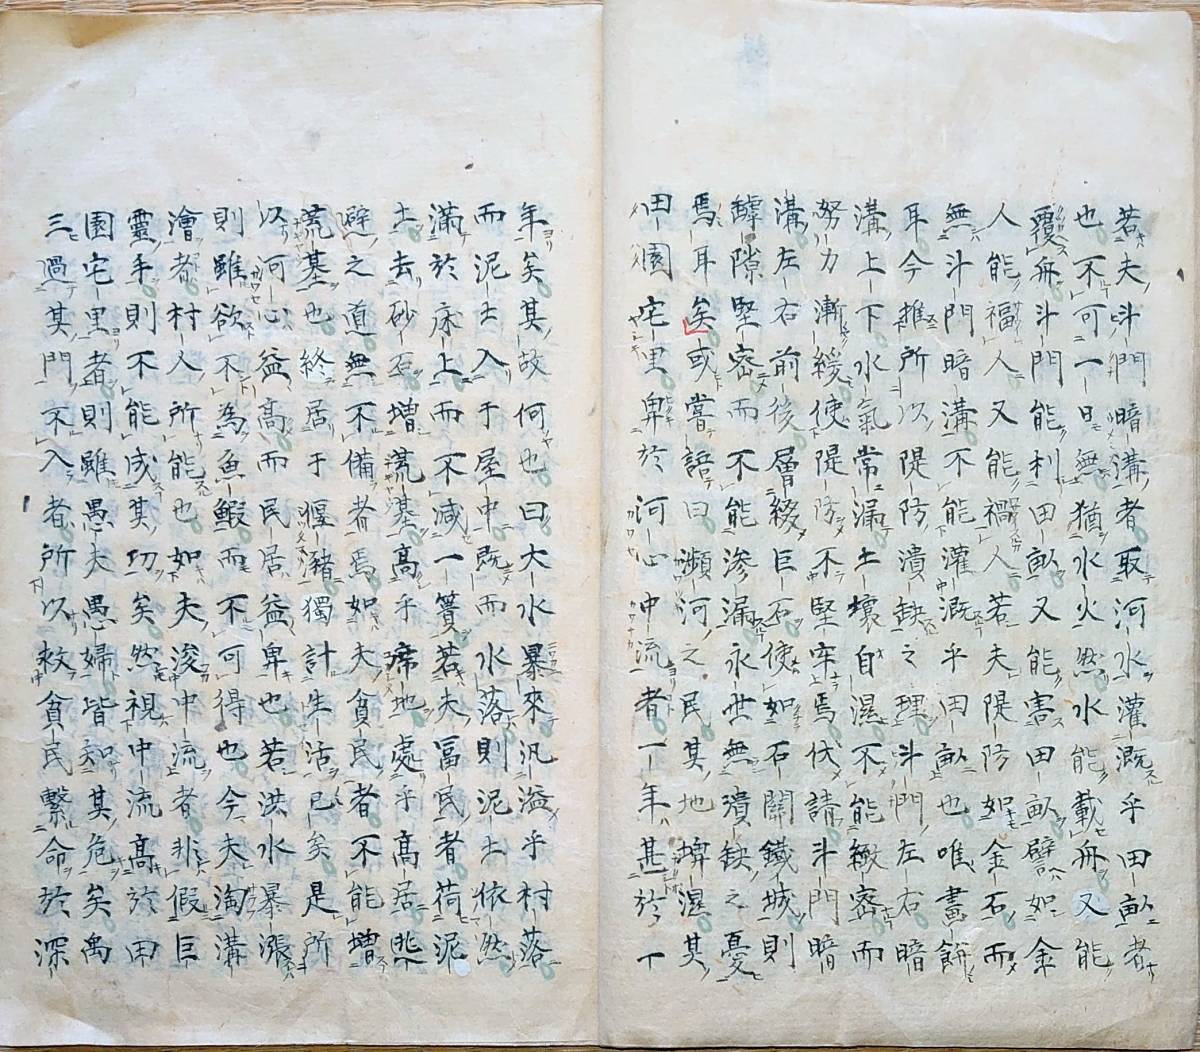 若夫斗門暗溝者取河水灌漑乎田畝者
也不可一日無猶水火然水能載舟又能
覆舟斗門能利田畝又能害田畝譬如金
人能福人又能禍人若夫隄防如金石而
無斗門暗溝不能灌漑乎田畝也唯畫餅
耳今推所以隄防潰缺之理斗門左右暗
溝上下水氣常漏土壞自濕不能緻密而
努力漸緩使隄防不堅牢焉伏請斗門暗
溝左右前後層綴巨石使如石關鐵城則
罅隙堅密而不能滲漏永世無潰缺之憂
焉耳矣或嘗語曰瀕河之民其地埤濕其
田園宅里卑於河心中流者一年甚於一
年矣其故何也曰大水暴來汎溢乎村落
而泥土入于屋中既而水落則泥土依然
滿於床上而不減一簣若夫富民者荷泥
土去砂石增荒基高乎席地處乎高居逃
避之道無不備者焉如夫貧民者不能增
荒基也終居于偃豬獨計生活已矣是所
以河心益高而民居益卑也若洪水暴漲
則雖欲不為魚鰕而不可得也今夫淘溝
澮者村人所能也如夫浚中流者非假巨
靈手則不能成其功矣然視中流高於田
園宅里者則雖愚夫愚婦皆知其危矣禹
三過其門不入者所以救貧民繫命於深